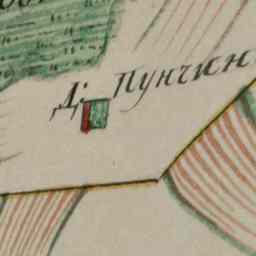 Д: Пунчин